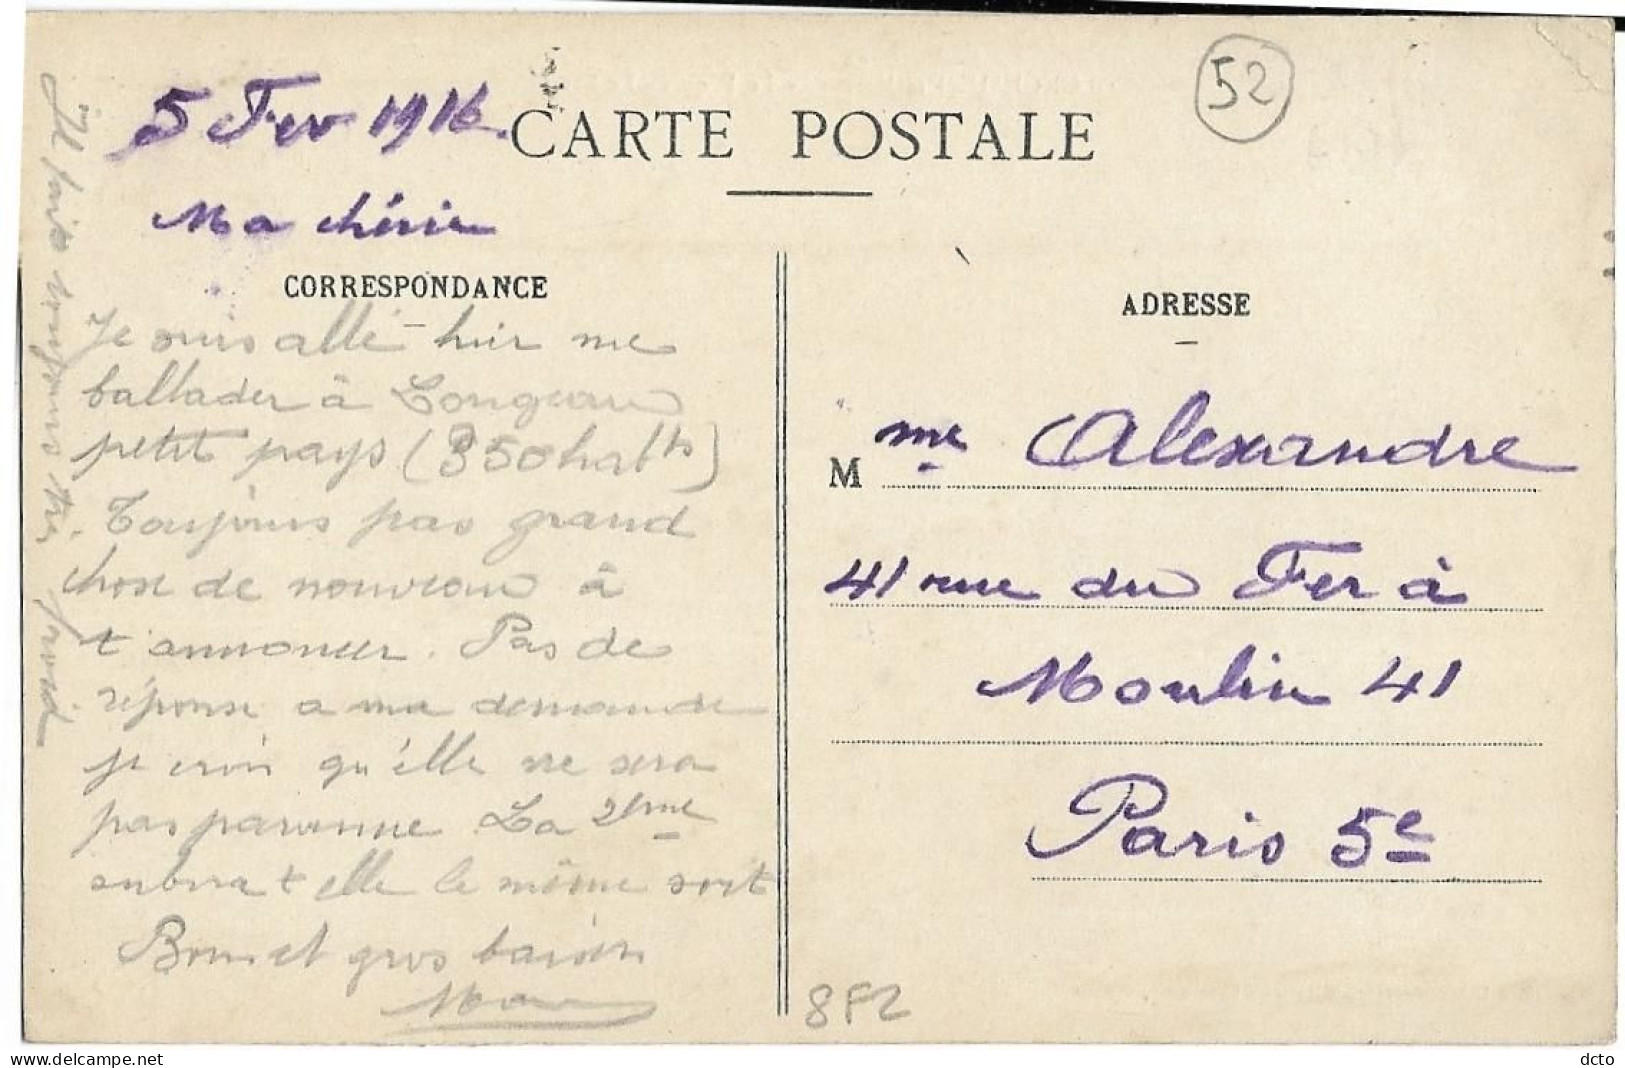 52
5 Fev 1916.
CARTE POSTALE
Ma chérie
CORRESPONDANCE
Je suis allé hier me
ballader à Longeau
petit pays (350 habts)
Toujours pas grand
chose de nouveau à
t'annoncer. Pas de
réponse a ma demande
je crois qu'elle ne sera
pas parvenue. La 2ème
subira t elle le même sort
Bons et gros baisers
Il fait toujours très froid
ADRESSE
M me Alexandre
41 rue du Fer à
Moulin 41
Paris 5e
8F2
www.delcampe.net
dcto